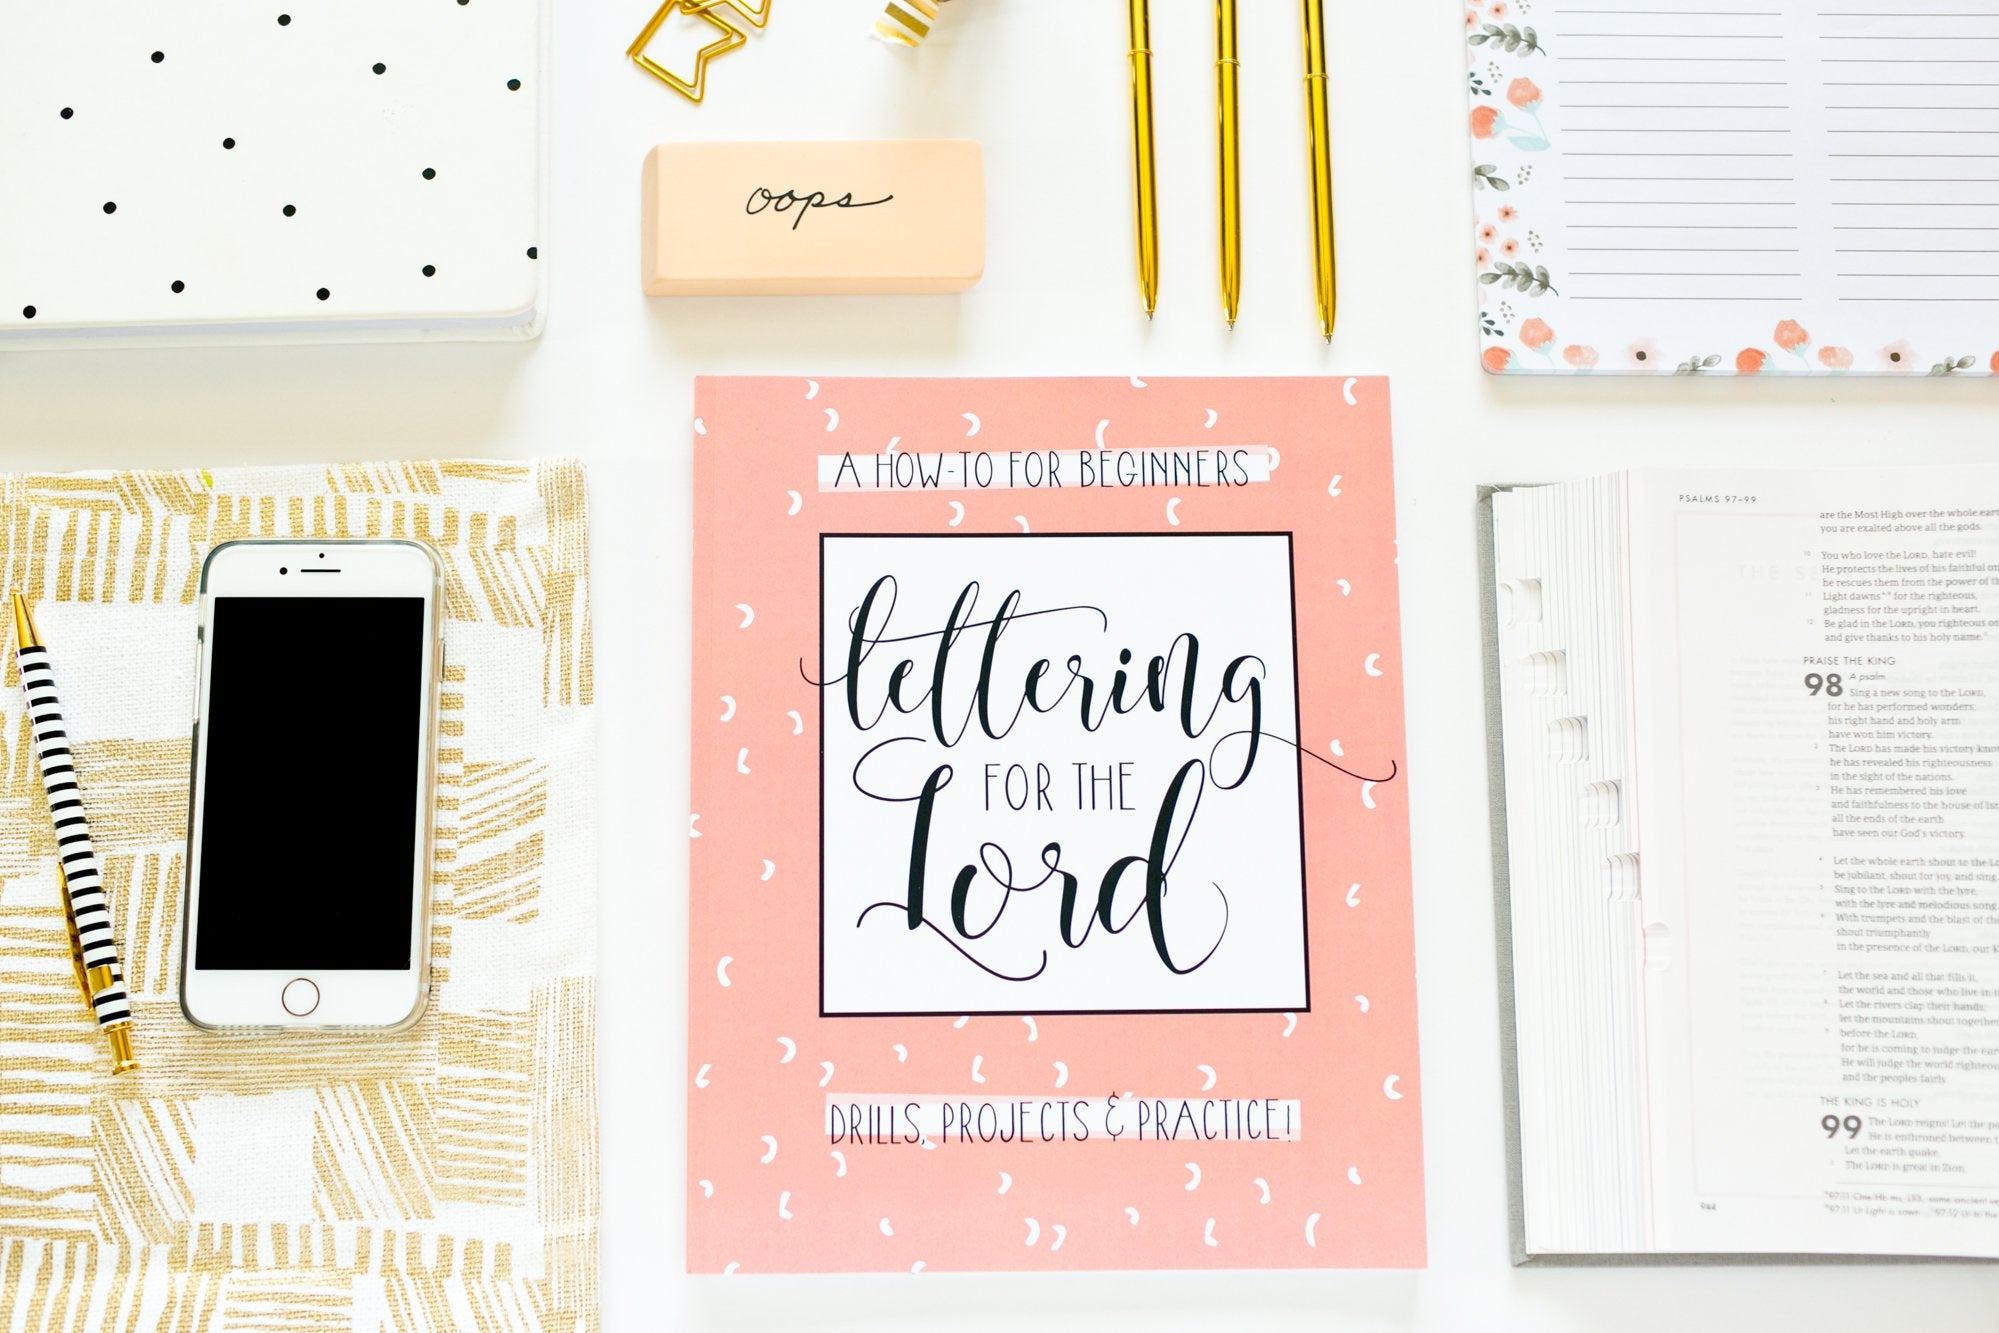 oops
A HOW-TO FOR BEGINNERS
lettering
FOR THE
Lord
DRILLS, PROJECTS & PRACTICE!
PSALMS 97–99
are the Most High over the whole eart
you are exalted above all the gods.
10 You who love the LORD, hate evil!
He protects the lives of his faithful on
he rescues them from the power of th
11 Light dawns for the righteous,
gladness for the upright in heart.
12 Be glad in the LORD, you righteous on
and give thanks to his holy name.
PRAISE THE KING
98 A psalm.
Sing a new song to the LORD,
for he has performed wonders;
his right hand and holy arm
have won him victory.
2 The LORD has made his victory know
he has revealed his righteousness
in the sight of the nations.
3 He has remembered his love
and faithfulness to the house of Isr
all the ends of the earth
have seen our God's victory.
4 Let the whole earth shout to the Lo
be jubilant, shout for joy, and sing.
5 Sing to the LORD with the lyre,
with the lyre and melodious song.
6 With trumpets and the blast of the
shout triumphantly
in the presence of the LORD, our K
7 Let the sea and all that fills it,
the world and those who live in it
8 Let the rivers clap their hands;
let the mountains shout together
9 before the LORD,
for he is coming to judge the ear
He will judge the world righteou
and the peoples fairly.
THE KING IS HOLY
99 The LORD reigns! Let the pe
He is enthroned between t
Let the earth quake.
2 The LORD is great in Zion,
944